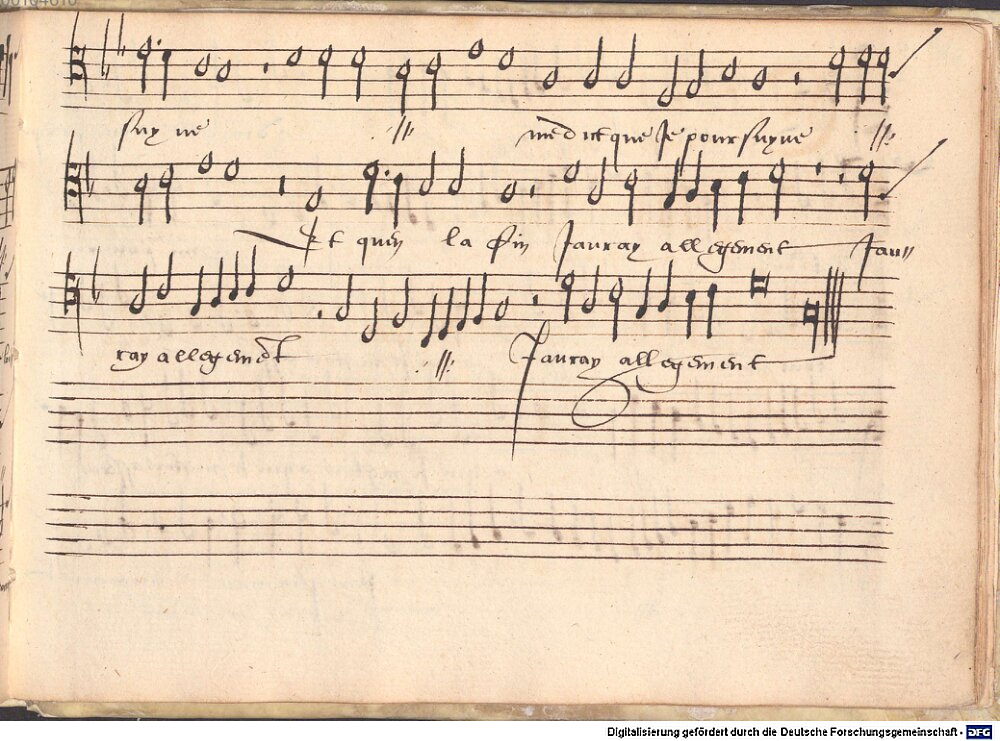 suyue // med ict que Je poursuyue //
Et quen la fin Jauray allegement Jau//
ray allegemēt // Jauray allegement
Digitalisierung gefördert durch die Deutsche Forschungsgemeinschaft - DFG